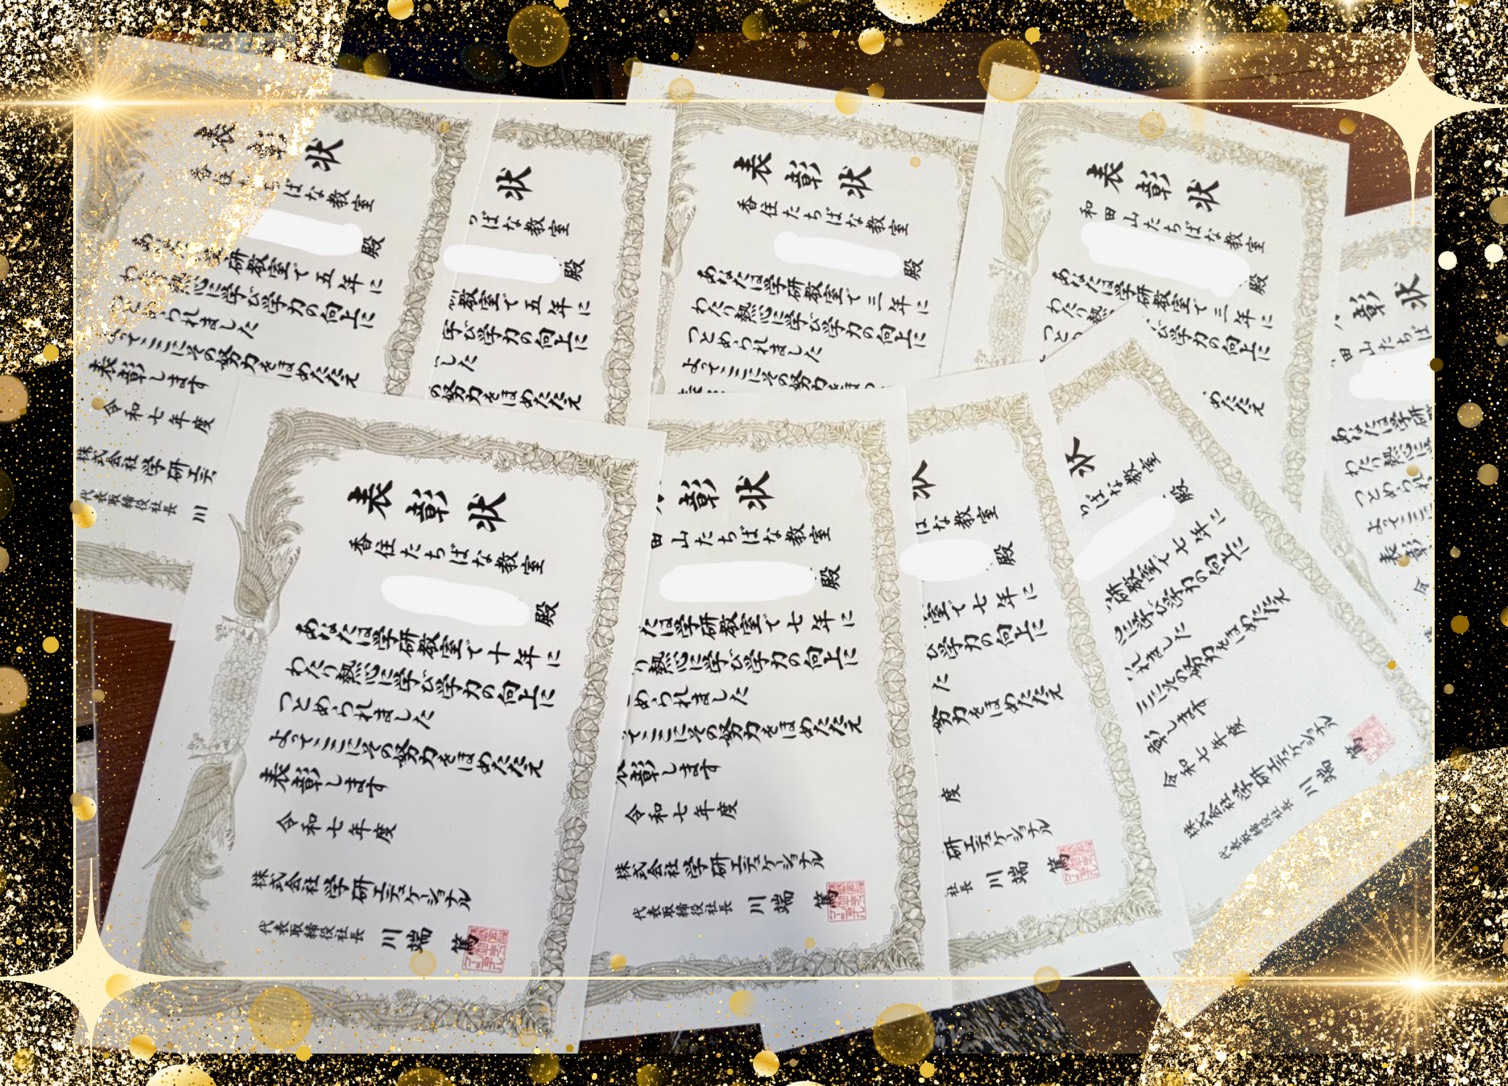 表彰状
ばな教室
殿
研教室で五年に
わたり熱心に学び学力の向上に
つとめられました
よってここにその努力をほめたたえ
表彰します
令和七年度
株式会社学研エデ
代表取締役社長 川
状
ばな教室
殿
教室で五年に
学び学力の向上に
した
の努力をほめたたえ
表彰状
香住たちばな教室
殿
あなたは学研教室で三年に
わたり熱心に学び学力の向上に
つとめられました
よってここにその努力をほめたたえ
表彰状
和田山たちばな教室
殿
あなたは学研教室で三年に
わたり熱
び学力の向上に
つと
ほめたたえ
彰状
田山たちば
あなたは学研
わたり熱心に
つとめられま
よってここに
表彰
令
表彰状
香住たちばな教室
殿
あなたは学研教室で十年に
わたり熱心に学び学力の向上に
つとめられました
よってここにその努力をほめたたえ
表彰します
令和七年度
株式会社学研エデュケーショナル
代表取締役社長 川端 篤
彰状
田山たちばな教室
殿
たは学研教室で七年に
り熱心に学び学力の向上に
められました
てここにその努力をほめたたえ
表彰します
令和七年度
株式会社学研エデュケーショナル
代表取締役社長 川端 篤
状
ばな教室
殿
室で七年に
び学力の向上に
た
努力をほめたたえ
度
研エデュケーショナル
社長 川端 篤
状
ちばな教室
殿
研教室で七年に
心に学び学力の向上に
られました
ここにその努力をほめたたえ
彰します
令和七年度
株式会社学研エデュケーショナル
代表取締役社長 川端 篤